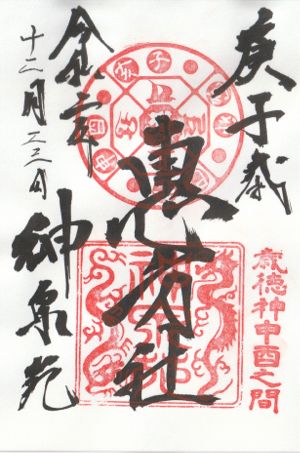 庚子歳
歳徳神申酉之間
惠方社
令和二年
十二月二三日
神泉苑